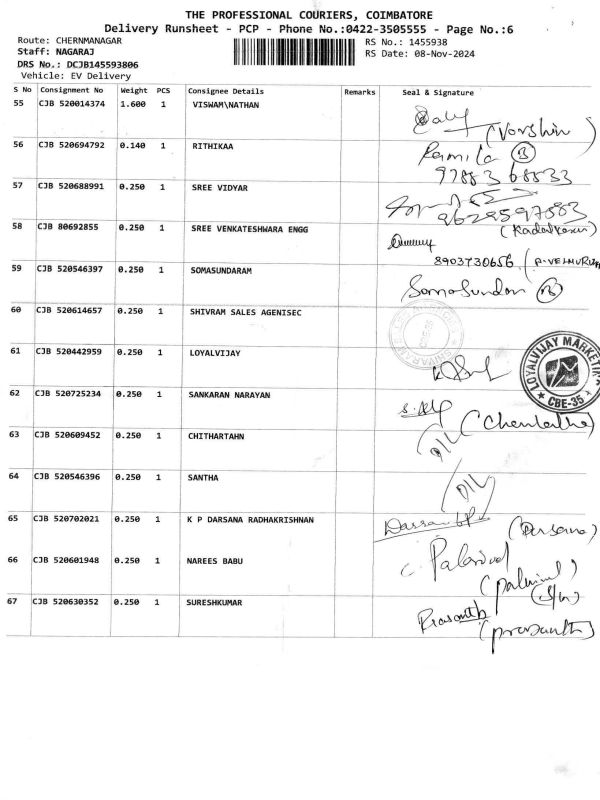 THE PROFESSIONAL COURIERS, COIMBATORE
Delivery Runsheet - PCP - Phone No.:0422-3505555 - Page No.:6
Route: CHERNMANAGAR
RS No.: 1455938
Staff: NAGARAJ
RS Date: 08-Nov-2024
DRS No.: DCJB145593806
Vehicle: EV Delivery
S No Consignment No Weight PCS Consignee Details Remarks Seal & Signature
55 CJB 520014374 1.600 1 VISWAM\NATHAN
(Varshin)
56 CJB 520694792 0.140 1 RITHIKAA
Ramila B
97883 68533
57 CJB 520688991 0.250 1 SREE VIDYAR
9629597883
58 CJB 80692855 0.250 1 SREE VENKATESHWARA ENGG
8903730656
59 CJB 520546397 0.250 1 SOMASUNDARAM
Somasundan
60 CJB 520614657 0.250 1 SHIVRAM SALES AGENISEC
61 CJB 520442959 0.250 1 LOYALVIJAY
LOYALVIJAY MARKETING
★ CBE-35 ★
62 CJB 520725234 0.250 1 SANKARAN NARAYAN
63 CJB 520609452 0.250 1 CHITHARTAHN
D/L
64 CJB 520546396 0.250 1 SANTHA
D/L
65 CJB 520702021 0.250 1 K P DARSANA RADHAKRISHNAN
(Darsana)
66 CJB 520601948 0.250 1 NAREES BABU
67 CJB 520630352 0.250 1 SURESHKUMAR
Prasanth
(prasanth)